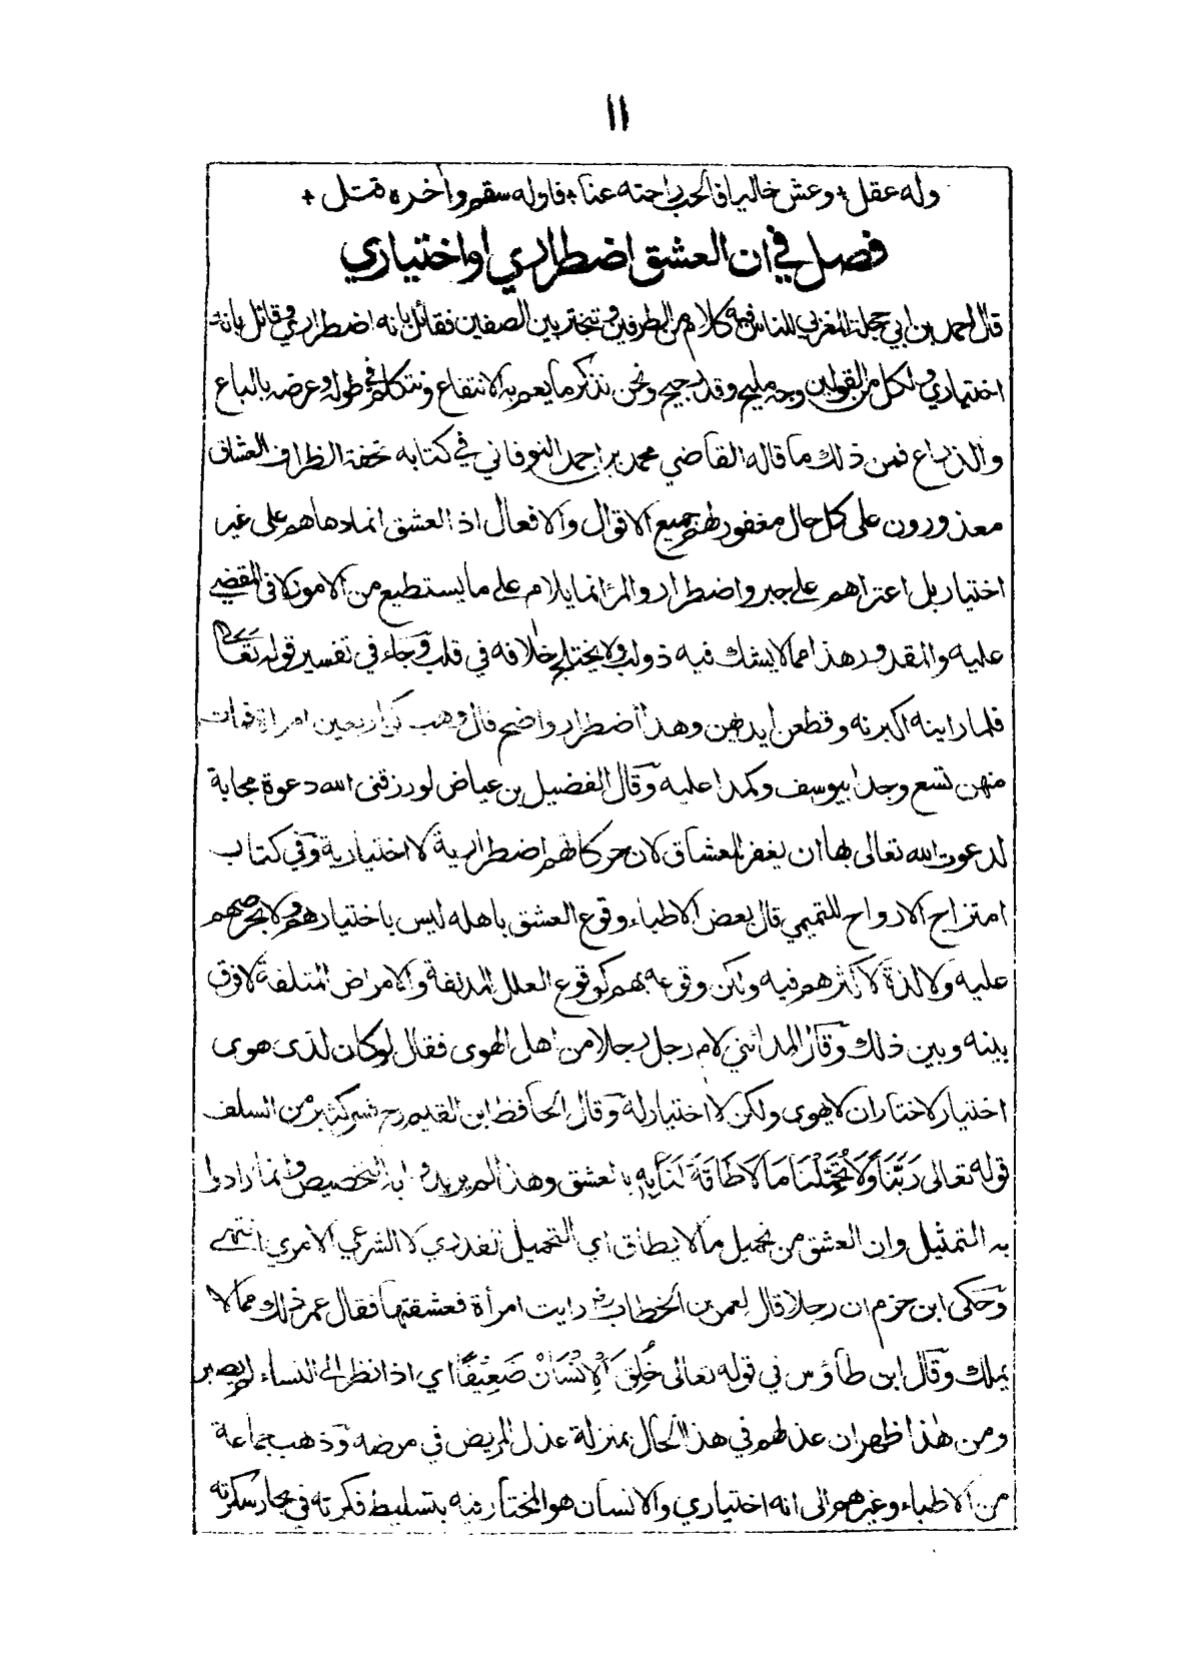 ١١
وله عقل + وعش خاليا فالحب راحته عنا + فاوله سقم وآخره قتل +
فصل في ان العشق اضطراري او اختياري
قال احمد بن ابي حجلة المغربي للناس فيه كلام من الطرفين وتبختر بين الصفين فقائل بانه اضطراري وقائل بانه
اختياري ولكل من القولين وجه مليح وقد رجيح ونحن نذكر ما يعم به الانتفاع ونتكلم في طوله وعرضه بالباع
والذراع فمن ذلك ما قاله القاضي محمد بن احمد النوقاني في كتابه تحفة الظراف العشاق
معذورون على كل حال مغفور لهم جميع الاقوال والافعال اذ العشق انما دهاهم على غير
اختيار بل اعتراهم على جبر واضطرار والمرء انما يلام على ما يستطيع من الامور لا في المقضي
عليه والمقدور هذا مما لا يشك فيه ذو لب ولا يختلج خلافه في قلب وجاء في تفسير قوله تعالى
فلما راينه اكبرنه وقطعن ايديهن وهذا اضطرار واضح قال وهب كن اربعين امراة فمات
منهن تسع وجدا بيوسف وكمدا عليه وقال الفضيل بن عياض لو رزقنى الله دعوة مجابة
لدعوت الله تعالى بها ان يغفر للعشاق لان حركاتهم اضطرارية لا اختيارية وفي كتاب
امتزاج الارواح للتميمي قال بعض الاطباء وقوع العشق باهله ليس باختيارهم ولا بحرصهم
عليه ولا لذة لاكثرهم فيه ولكن وقوعه بهم كوقوع العلل المدنفة والامراض المتلفة لا فرق
بينه وبين ذلك وقال المدائني لام رجل رجلا من اهل الهوى فقال لو كان لذى هوى
اختيار لاختار ان لا يهوى ولكن لا اختيار له وقال الحافظ ابن القيم رح فسر كثير من السلف
قوله تعالى رَبَّنَا وَلَا تُحَمِّلْنَا مَا لَا طَاقَةَ لَنَا بِهِ بالعشق وهذا لم يريدوا به التخصيص وانما ارادوا
به التمثيل وان العشق من تحميل ما لا يطاق اي التحميل القدري لا الشرعي الامري انتهى
وحكى ابن حزم ان رجلا قال لعمر بن الخطاب رض رايت امرأة فعشقتها فقال عمر ذلك مما لا
يملك وقال ابن طاؤس في قوله تعالى خُلِقَ الْاِنْسَانُ ضَعِيْفًا اي اذا نظر الى النساء لم يصبر
ومن هذا ظهر ان عذلهم في هذا الحال بمنزلة عذل المريض في مرضه وذهب جماعة
من الاطباء وغيرهم الى انه اختياري والانسان هو المختار فيه بتسليط فكرته في بحار سكرته